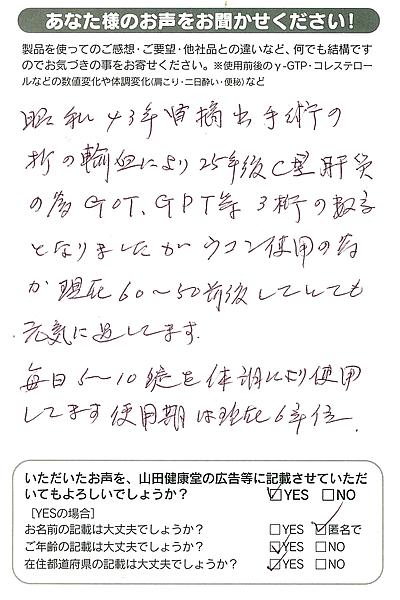 あなた様のお声をお聞かせください!
製品を使ってのご感想・ご要望・他社品との違いなど、何でも結構です
のでお気づきの事をお寄せください。※使用前後のγ-GTP・コレステロー
ルなどの数値変化や体調変化(肩こり・二日酔い・便秘)など
昭和43年胃摘出手術の
折の輸血により25年後C型肝炎
の為GOT、GPT等3桁の数字
となりましたがウコン使用の為
か現在60〜50前後していても
元気に過してます.
毎日5〜10錠を体調により使用
してます使用期は現在6年位.
いただいたお声を、山田健康堂の広告等に記載させていただ
いてもよろしいでしょうか? ☑YES □NO
[YESの場合]
お名前の記載は大丈夫でしょうか? □YES ☑匿名で
ご年齢の記載は大丈夫でしょうか? ☑YES □NO
在住都道府県の記載は大丈夫でしょうか? ☑YES □NO